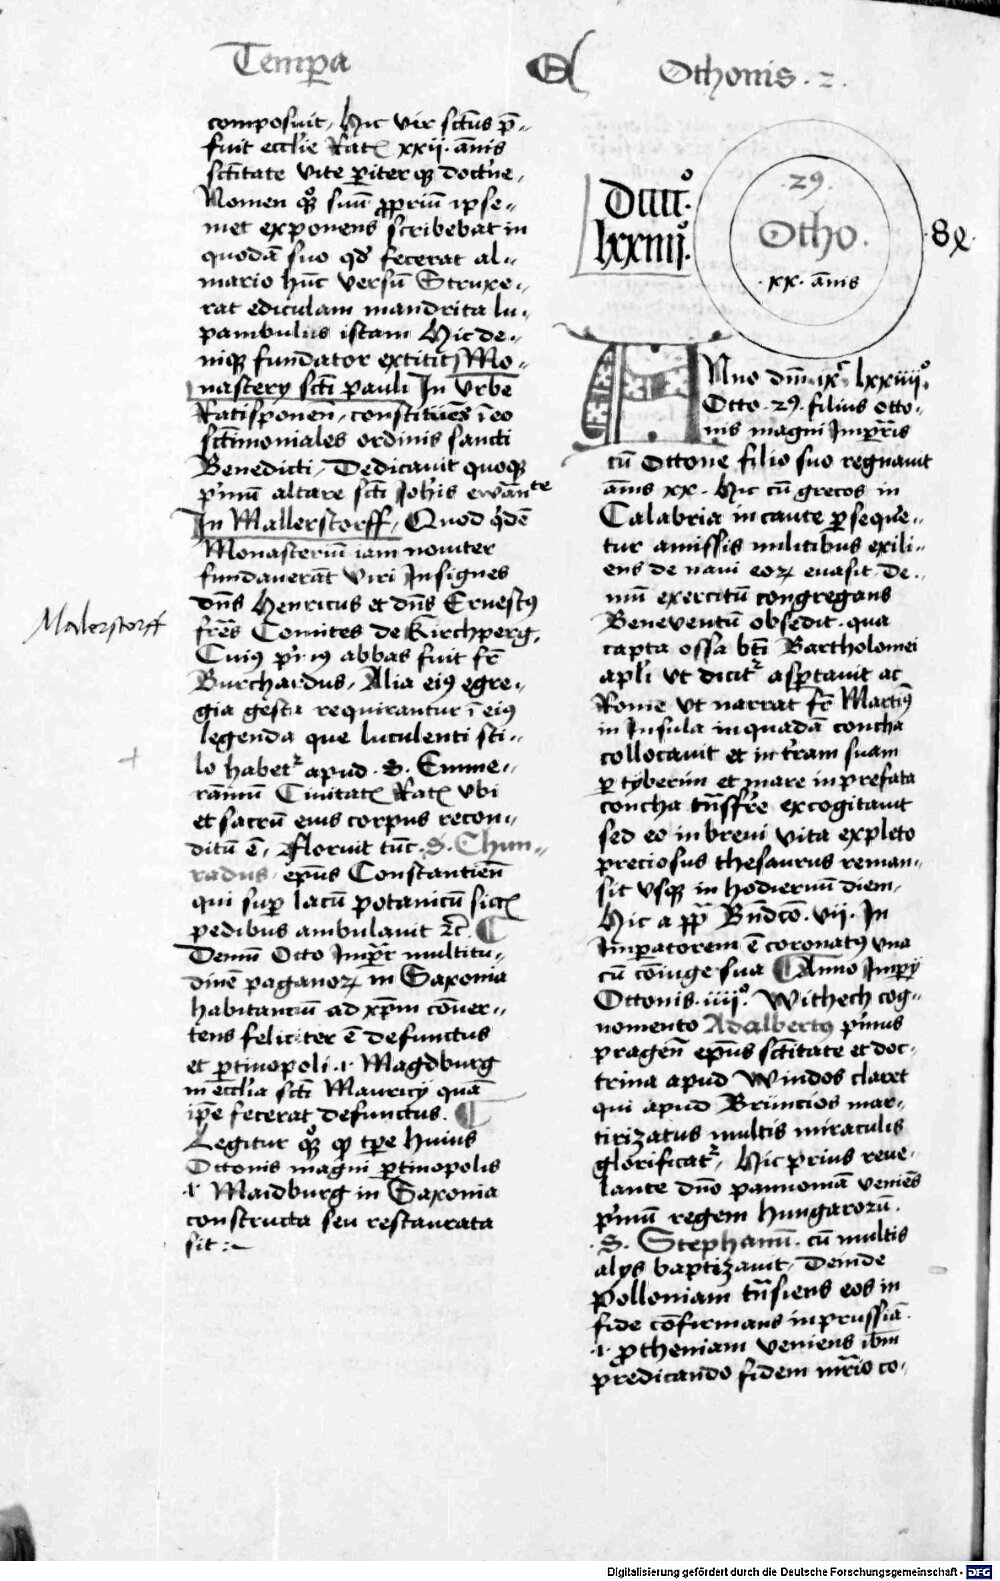 Tempa
Othonis . 2 .
composuit, Hic vir sct̄us p̄-
fuit eccl̄ie Rat̄ xxij. an̄is
sct̄itate vite pariter qз doct'ne,
Nomen qͦз suū ꝓpriū ipse-
met exponens scribebat in
quodā suo qd' fecerat al-
mario hūc versū Struxe-
rat ediculam mandrita lu-
pambulus istam Hic de-
niqз fundator extitit Mo-
nastery sct̄i pauli In Vrbe
Ratisponen̄, constituēs ī eo
sct̄imoniales ordinis sancti
Benedicti, Dedicauit quoqз
p'mū altare sct̄i Joh'is ewāⁿᵗᵉ
In Mallerstorff, Quod q'dē
Monasteriū iam nouiter
fundauerāt Viri Insignes
dn̄s Henricus et dn̄s Ernestꝰ
fr̄es Comites de Kirchperg,
Malerstorff
Cuiꝰ p'mꝰ abbas fuit fr̄
Burchardus, Alia eiꝰ egre-
gia gesta requirantur ī eiꝰ
legenda que luculenti sti-
lo habet᷑ apud . S . Emme-
ramū Ciuitat̄ Rat̄ vbi
et sacrū eius corpus recon-
ditū ē, Floruit tūc . S . Chun-
radus, ep̄us Constantien̄
qui sup lacū potanicū sicc̄
pedibus ambulauit ꝛc̄.
Demū Otto Imp̄r multitu-
dinē paganoꝝ in Saxonia
habitantiū ad xp̄m cōuer-
tens feliciter ē defunctus
et ꝑtinopoli .i. Magdburg
in eccl̄ia sct̄i Mauricij quā
ip̄e fecerat defunctus.
Legitur qͦз qͦ tp̄e huius
Ottonis magni ꝑtinopolis
.i. Maidburg in Saxonia
constructa seu restaurata
sit :~
Dcccc°.
lxxiiij°.
. 29 .
Otho .
. xx . an̄is
Anno dn̄i ixᶜ lxxiiij°.
Otto . 29 . filius otto-
nis magni Imp̄r̄is
cū Ottone filio suo regnauit
an̄is xx . Hic cū grecos in
Calabria incaute ꝑseque-
tur amissis militibus exili-
ens de naui eoꝝ euasit . De-
mū exercitū congregans
Beneventū obsedit . qua
capta ossa bt̄i Bartholomei
apl'i vt dicit᷑ asportauit ac
Rome vt narrat fr̄ Martinꝰ
in Insula in quadā concha
collocauit et in t'ram suam
ꝑ tyberim et mare in prefata
concha trāsfr̄e excogitauit
sed eo in breui vita expleto
preciosus thesaurus reman-
sit vsqз in hodiernū diem,
Hic a pp̄ Bn̄dc̄o . vij . In
Imperatorem ē coronatꝰ vna
cū cōiuge sua Anno Imp̄ij
Ottonis . iiij°. Withech cog-
nomento Adalbertꝰ p'mus
pragen̄ ep̄us sct̄itate et doc-
trina apud Windos claret
qui apud Brūncios mar-
tirizatus multis miraculis
glorificat᷑, Hic prius reue-
lante dn̄o pannoniā veniēs
p'mū regem hungarorū .
. S . Stephanū . cū multis
alys baptizauit, Deinde
Polloniam trāsiens eos in
fide cōfirmans in prussiā .
.i. ꝓtheniam veniens ib̄m
predicando fidem mr̄tio co-
Digitalisierung gefördert durch die Deutsche Forschungsgemeinschaft - DFG